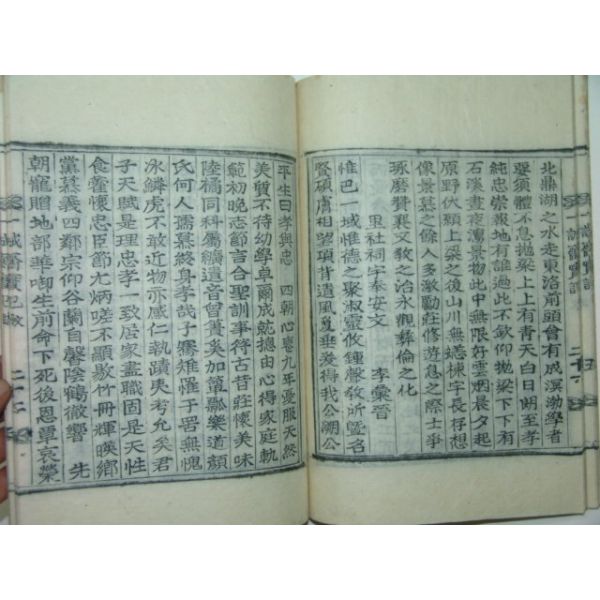 北鼎湖之水走東洛前頭會有成溟渤學者
要須體不息抛梁上上有青天白日朗至孝
純忠崇報地有誰過此不欽仰抛梁下下有
石溪晝夜瀉景物此中無限好雲烟晨夕起
原野伏願上梁之後山川無恙棟宇長存想
像景慕之條人多激勵莊修遊息之際士爭
琢磨贊襄文敎之治永觀彛倫之化
里社祠宇奉安文
李彙晉
惟巴一域惟德之聚淑靈攸鍾聲敎所曁名
賢碩膚相望項背遺風
得我公湖公
平生曰孝與忠 四朝心喪九年憂服天然
美質不待幼學卓爾成就摠由心得家庭軌
範初晩志節言合聖訓事符古昔莊懷美味
陸橘同科屬纊遺音曾簀奚加簞瓢樂道顔
氏何人孺慕終身孝哉子騫雉罹子罟無愧
氷鱗虎不敢近物亦感仁執蹟夷考允矣君
子天賦是理忠孝一致居家盡職固是天性
食虀懷忠臣節尤炳嗟不顯敭竹冊輝暎鄕
黨慕義四鄰宗仰谷蘭自馨陰鶴徹響 先
朝寵贈地部華啣生前命下死後恩覃哀榮